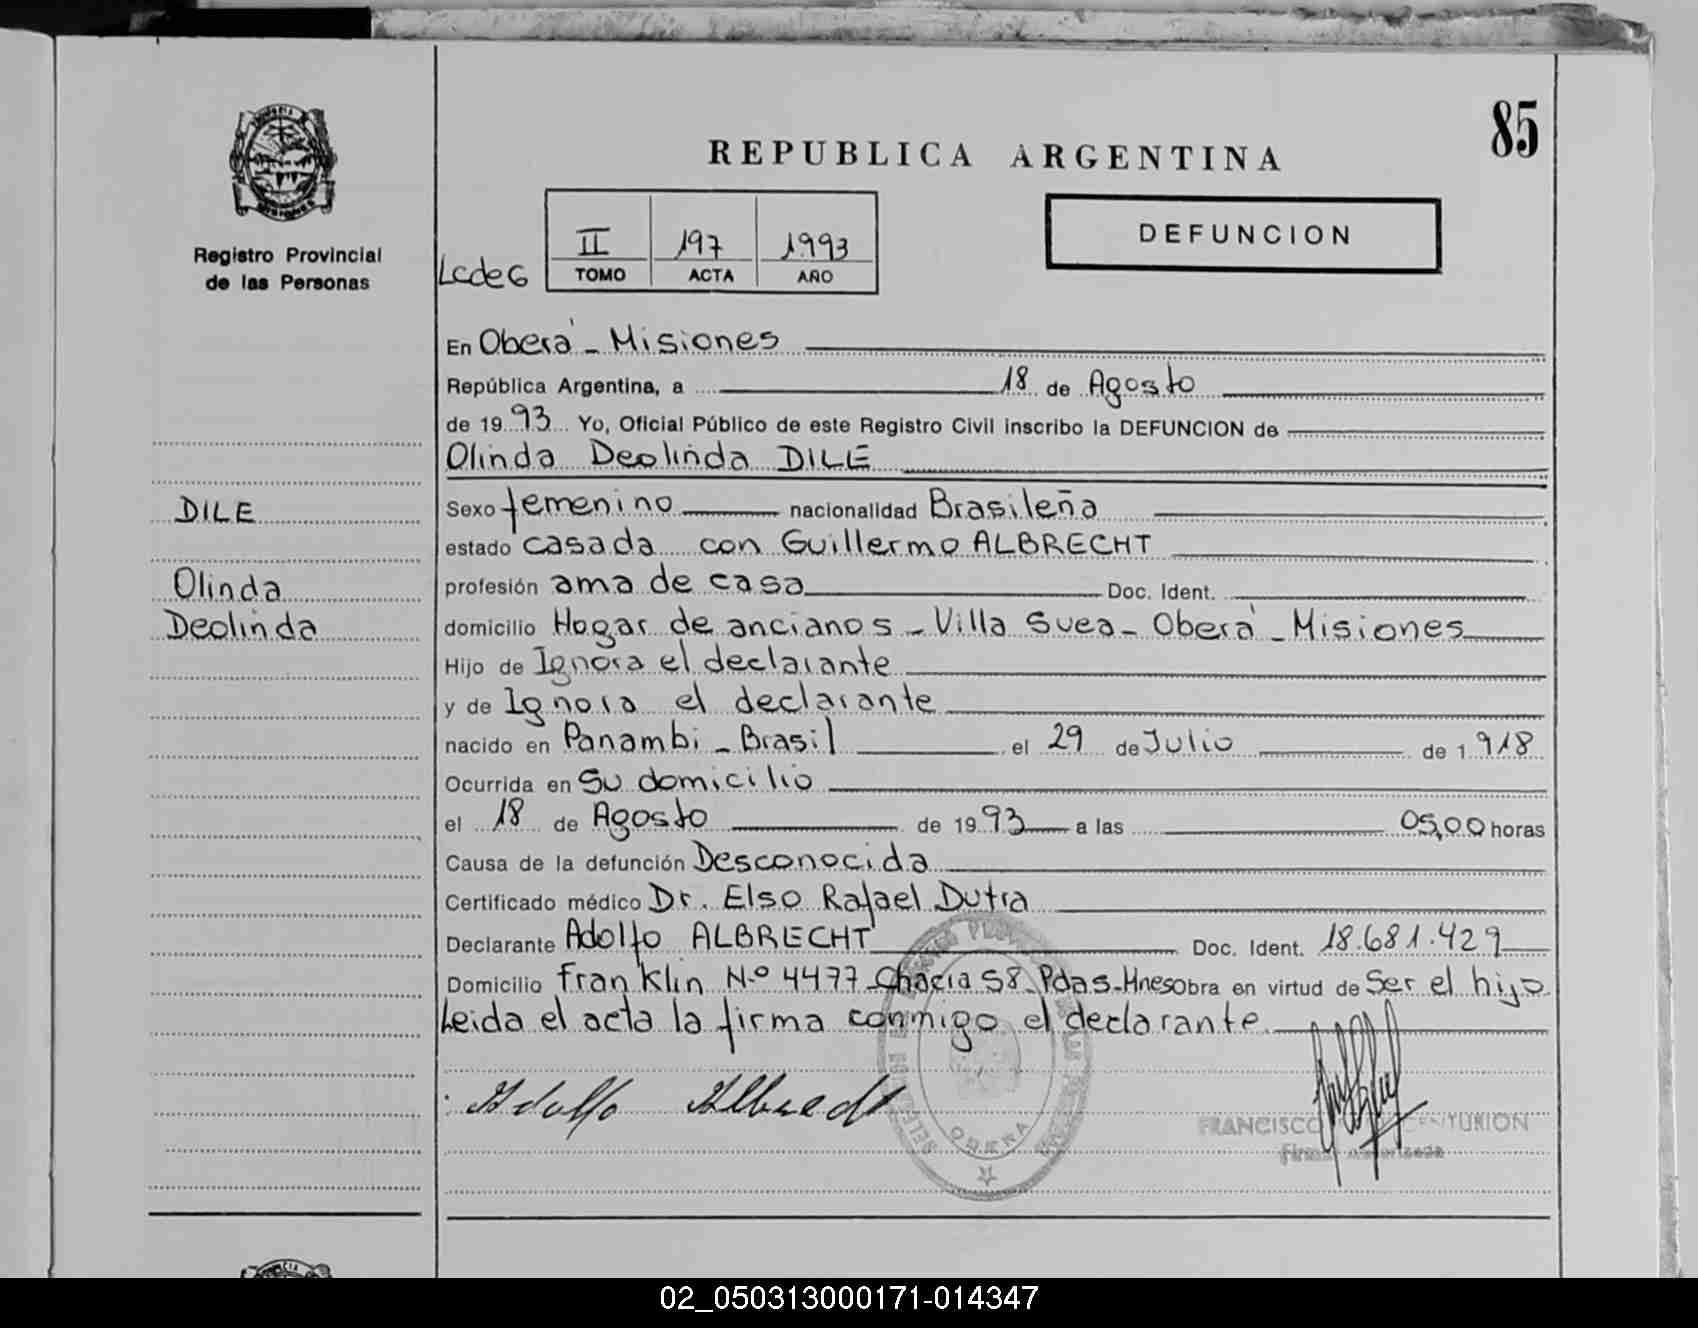 85
REPUBLICA ARGENTINA
DEFUNCION
Registro Provincial
de las Personas
II 197 1993
TOMO ACTA AÑO
En Oberá - Misiones
República Argentina, a 18 de Agosto
de 19 93 Yo, Oficial Público de este Registro Civil inscribo la DEFUNCION de
Olinda Deolinda DILE
DILE
Olinda
Deolinda
Sexo femenino nacionalidad Brasileña
estado casada con Guillermo ALBRECHT
profesión ama de casa Doc. Ident.
domicilio Hogar de ancianos - Villa Svea - Oberá - Misiones
Hijo de Ignora el declarante
y de Ignora el declarante
nacido en Panambi - Brasil el 29 de Julio de 1 918
Ocurrida en Su domicilio
el 18 de Agosto de 19 93 a las 05,00 horas
Causa de la defunción Desconocida
Certificado médico Dr. Elso Rafael Dutra
Declarante Adolfo ALBRECHT Doc. Ident. 18.681.429
Domicilio Franklin N.º 4477 Chacra 58 - Pdas - Mnes obra en virtud de Ser el hijo
Leida el acta la firma conmigo el declarante
Adolfo Albrecht
OBERA
FRANCISCO CENTURION
02_050313000171-014347